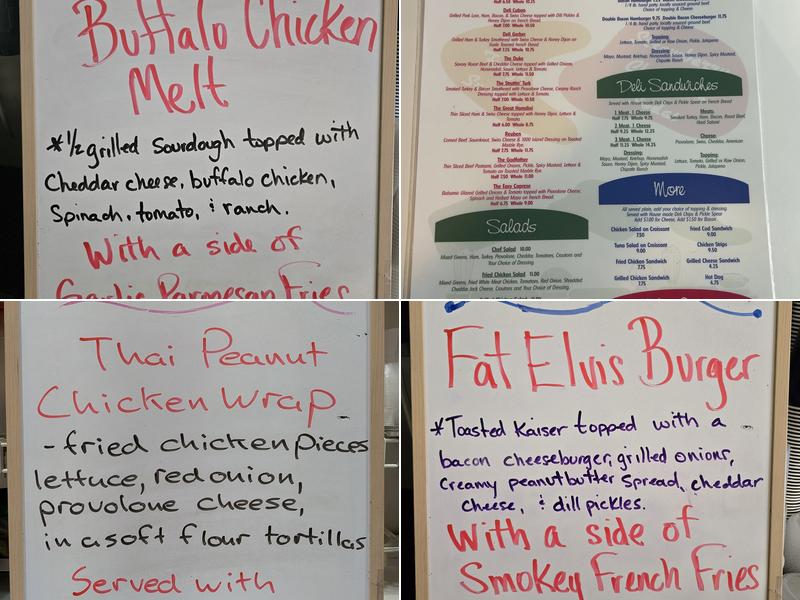 Buffalo Chicken
Melt
*½ grilled Sourdough topped with
Cheddar cheese, buffalo chicken,
Spinach, tomato, & ranch.
With a side of
Garlic Parmesan Fries
Deli Cuban
Grilled Pork Loin, Ham, Bacon, & Swiss Cheese topped with Dill Pickles &
Honey Dijon on French Bread.
Half 7.00 Whole 10.50
Deli Gerber
Grilled Ham & Turkey Smothered with Swiss Cheese & Honey Dijon on
Garlic Toasted French Bread.
Half 7.25 Whole 10.75
The Duke
Savory Roast Beef & Cheddar Cheese topped with Grilled Onions,
Horseradish Sauce, Lettuce & Tomato.
Half 7.75 Whole 11.50
The Struttin' Turk
Smoked Turkey & Bacon Smothered with Provolone Cheese, Creamy Ranch
Dressing topped with Lettuce & Tomato.
Half 7.00 Whole 10.50
The Great Hamdini
Thin Sliced Ham & Swiss Cheese topped with Honey Dijon, Lettuce &
Tomato.
Half 6.00 Whole 8.75
Reuben
Corned Beef, Sauerkraut, Swiss Cheese & 1000 Island Dressing on Toasted
Marble Rye.
Half 7.75 Whole 11.75
The Godfather
Thin Sliced Beef Pastrami, Grilled Onions, Pickle, Spicy Mustard, Lettuce &
Tomato on Toasted Marble Rye.
Half 7.50 Whole 11.00
The Easy Caprese
Balsamic Glazed Grilled Onions & Tomato topped with Provolone Cheese,
Spinach and Herbed Mayo on French Bread.
Half 6.75 Whole 9.00
Salads
Chef Salad 10.00
Mixed Greens, Ham, Turkey, Provolone, Cheddar, Tomatoes, Croutons and
Your Choice of Dressing.
Fried Chicken Salad 11.00
Mixed Greens, Fried White Meat Chicken, Tomatoes, Red Onion, Shredded
Cheddar Jack Cheese, Croutons and Your Choice of Dressing.
1/4 lb. hand patty locally sourced ground beef
Choice of topping & Cheese
Double Bacon Hamburger 9.75 Double Bacon Cheeseburger 11.75
1/4 lb. hand patty locally sourced ground beef
Choice of topping & Cheese
Topping:
Lettuce, Tomato, Grilled or Raw Onion, Pickle, Jalapeno
Dressing:
Mayo, Mustard, Ketchup, Horseradish Sauce, Honey Dijon, Spicy Mustard,
Chipotle Ranch
Deli Sandwiches
Served with House made Deli Chips & Pickle Spear on French Bread
1 Meat, 1 Cheese
Half 7.25 Whole 9.75
2 Meat, 1 Cheese
Half 9.25 Whole 12.25
3 Meat, 1 Cheese
Half 11.25 Whole 14.25
Dressing:
Mayo, Mustard, Ketchup, Horseradish
Sauce, Honey Dijon, Spicy Mustard,
Chipotle Ranch
Meats:
Smoked Turkey, Ham, Bacon, Roast Beef,
Hard Salami
Cheese:
Provolone, Swiss, Cheddar, American
Topping:
Lettuce, Tomato, Grilled or Raw Onion,
Pickle, Jalapeno
More
All served plain, add your choice of topping & dressing.
Served with House made Deli Chips & Pickle Spear
Add $1.00 for Cheese, Add $1.50 for Bacon
Chicken Salad on Croissant
7.50
Tuna Salad on Croissant
9.00
Fried Chicken Sandwich
7.75
Grilled Chicken Sandwich
7.75
Fried Cod Sandwich
9.00
Chicken Strips
9.50
Grilled Cheese Sandwich
4.25
Hot Dog
4.75
Thai Peanut
Chicken Wrap
- fried chicken pieces
lettuce, red onion,
provolone cheese,
in a soft flour tortillas
Served with
Fat Elvis Burger
*Toasted Kaiser topped with a
bacon cheeseburger, grilled onions,
Creamy peanut butter spread, cheddar
cheese, & dill pickles.
With a side of
Smokey French Fries